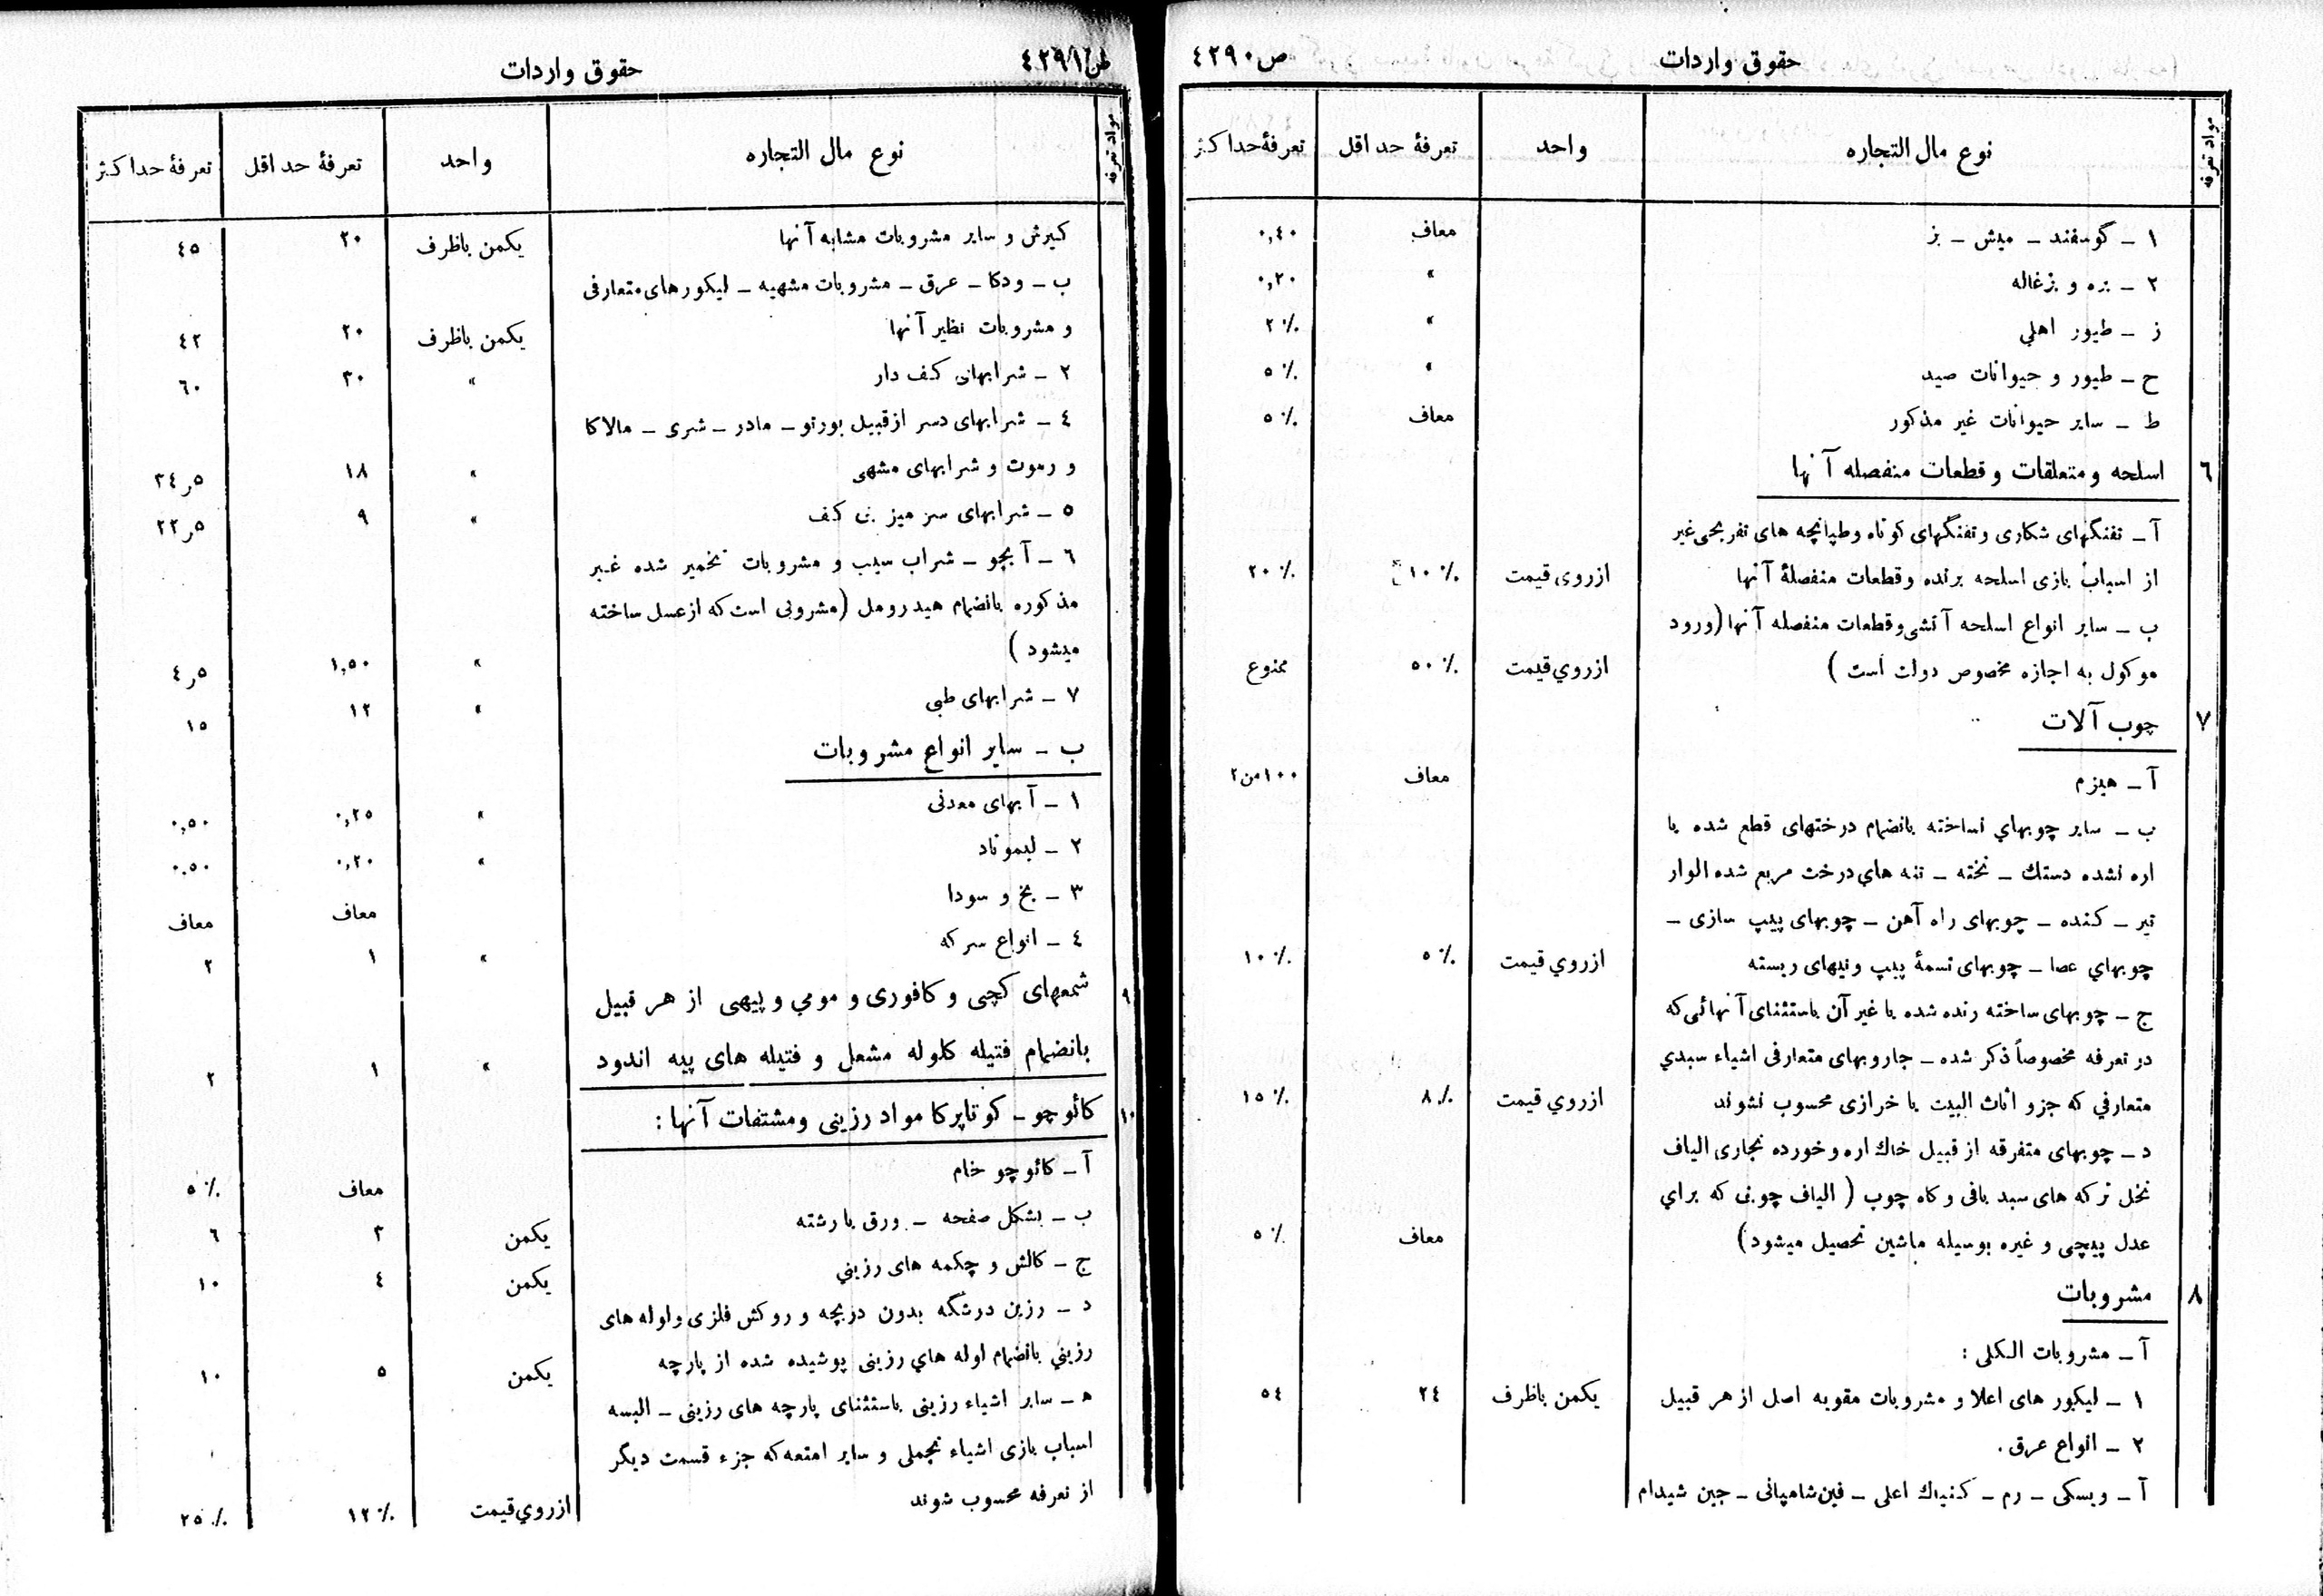 حقوق واردات ص ٤٢٩٠
مواد تعرفه نوع مال التجاره واحد تعرفهٔ حد اقل تعرفهٔ حداکثر
١ ـ گوسفند ـ میش ـ بز معاف ٠٫٤٠
٢ ـ بره و بزغاله » ٠٫٢٠
ز ـ طیور اهلي » ٢٪
ح ـ طیور و حیوانات صید » ٥٪
ط ـ سایر حیوانات غیر مذکور معاف ٥٪
٦ اسلحه و متعلقات و قطعات منفصله آنها
آ ـ تفنگهای شکاری و تفنگهای کوتاه وطپانچه های تفریحی غیر
از اسباب بازی اسلحه برنده و قطعات منفصلهٔ آنها ازروی قیمت ١٠٪ ٢٠٪
ب ـ سایر انواع اسلحه آتشی و قطعات منفصله آنها (ورود
موکول به اجازه مخصوص دولت است) ازروي قیمت ٥٠٪ ممنوع
٧ چوب آلات
آ ـ هیزم معاف ١٠٠من٢
ب ـ سایر چوبهاي نساخته بانضمام درختهای قطع شده یا
اره نشده دستك ـ تخته ـ تنه هاي درخت مربع شده الوار
تیر ـ کنده ـ چوبهای راه آهن ـ چوبهای پیپ سازی ـ
چوبهاي عصا ـ چوبهای تسمهٔ پیپ و نیهای ریسته ازروي قیمت ٥٪ ١٠٪
ج ـ چوبهای ساخته رنده شده یا غیر آن باستثنای آنهائی که
در تعرفه مخصوصاً ذکر شده ـ جاروبهای متعارفی اشیاء سبدي
متعارفي که جزو اثاث البیت یا خرازی محسوب نشوند ازروي قیمت ٨٪ ١٥٪
د ـ چوبهای متفرقه از قبیل خاك اره و خورده نجاری الیاف
نخل ترکه های سبد بافی و کاه چوب ( الیاف چوبی که براي
عدل پیچی و غیره بوسیله ماشین تحصیل میشود) معاف ٥٪
٨ مشروبات
آ ـ مشروبات الکلی :
١ ـ لیکور های اعلا و مشروبات مقویه اصل از هر قبیل یکمن باظرف ٢٤ ٥٤
٢ ـ انواع عرق .
آ ـ ویسکی ـ رم ـ کنیاك اعلی ـ فین شامپانی ـ جین شیدام
حقوق واردات ٤٢٩١
مواد تعرفه نوع مال التجاره واحد تعرفهٔ حد اقل تعرفهٔ حداکثر
کیرش و سایر مشروبات مشابه آنها یکمن باظرف ٢٠ ٤٥
ب ـ ودکا ـ عرق ـ مشروبات مشهیه ـ لیکورهای متعارفی
و مشروبات نظیر آنها یکمن باظرف ٢٠ ٤٢
٢ ـ شرابهای کف دار » ٣٠ ٦٠
٤ ـ شرابهای دسر ازقبیل بورتو ـ مادر ـ شری ـ مالاکا
و رموت و شرابهای مشهی » ١٨ ٣٤ر٥
٥ ـ شرابهای سر میز بی کف » ٩ ٢٢ر٥
٦ ـ آبجو ـ شراب سیب و مشروبات تخمیر شده غیر
مذکوره بانضمام هیدرومل (مشروبی است که از عسل ساخته
میشود) » ١٫٥٠ ٤ر٥
٧ ـ شرابهای طبی » ١٢ ١٥
ب ـ سایر انواع مشروبات
١ ـ آبهای معدنی » ٠٫٢٥ ٠٫٥٠
٢ ـ لیموناد » ٠٫٢٠ ٠.٥٠
٣ ـ یخ و سودا معاف معاف
٤ ـ انواع سرکه » ١ ٢
٩ شمعهای گچی و کافوری و مومي و پیهی از هر قبیل
بانضمام فتیله کلوله مشعل و فتیله های پیه اندود » ١ ٢
١٠ کائوچو ـ کوتاپرکا مواد رزینی ومشتقات آنها :
آ ـ کائوچو خام معاف ٥٪
ب ـ بشکل صفحه ـ ورق یا رشته یکمن ٣ ٦
ج ـ کالش و چکمه های رزیني یکمن ٤ ١٠
د ـ رزین درشگه بدون دریچه و روکش فلزی و لوله های
رزیني بانضمام لوله هاي رزینی پوشیده شده از پارچه یکمن ٥ ١٠
ه ـ سایر اشیاء رزینی باستثنای پارچه های رزینی ـ البسه
اسباب بازی اشیاء تجملی و سایر امتعه که جزء قسمت دیگر
از تعرفه محسوب شوند ازروي قیمت ١٢٪ ٢٥٪